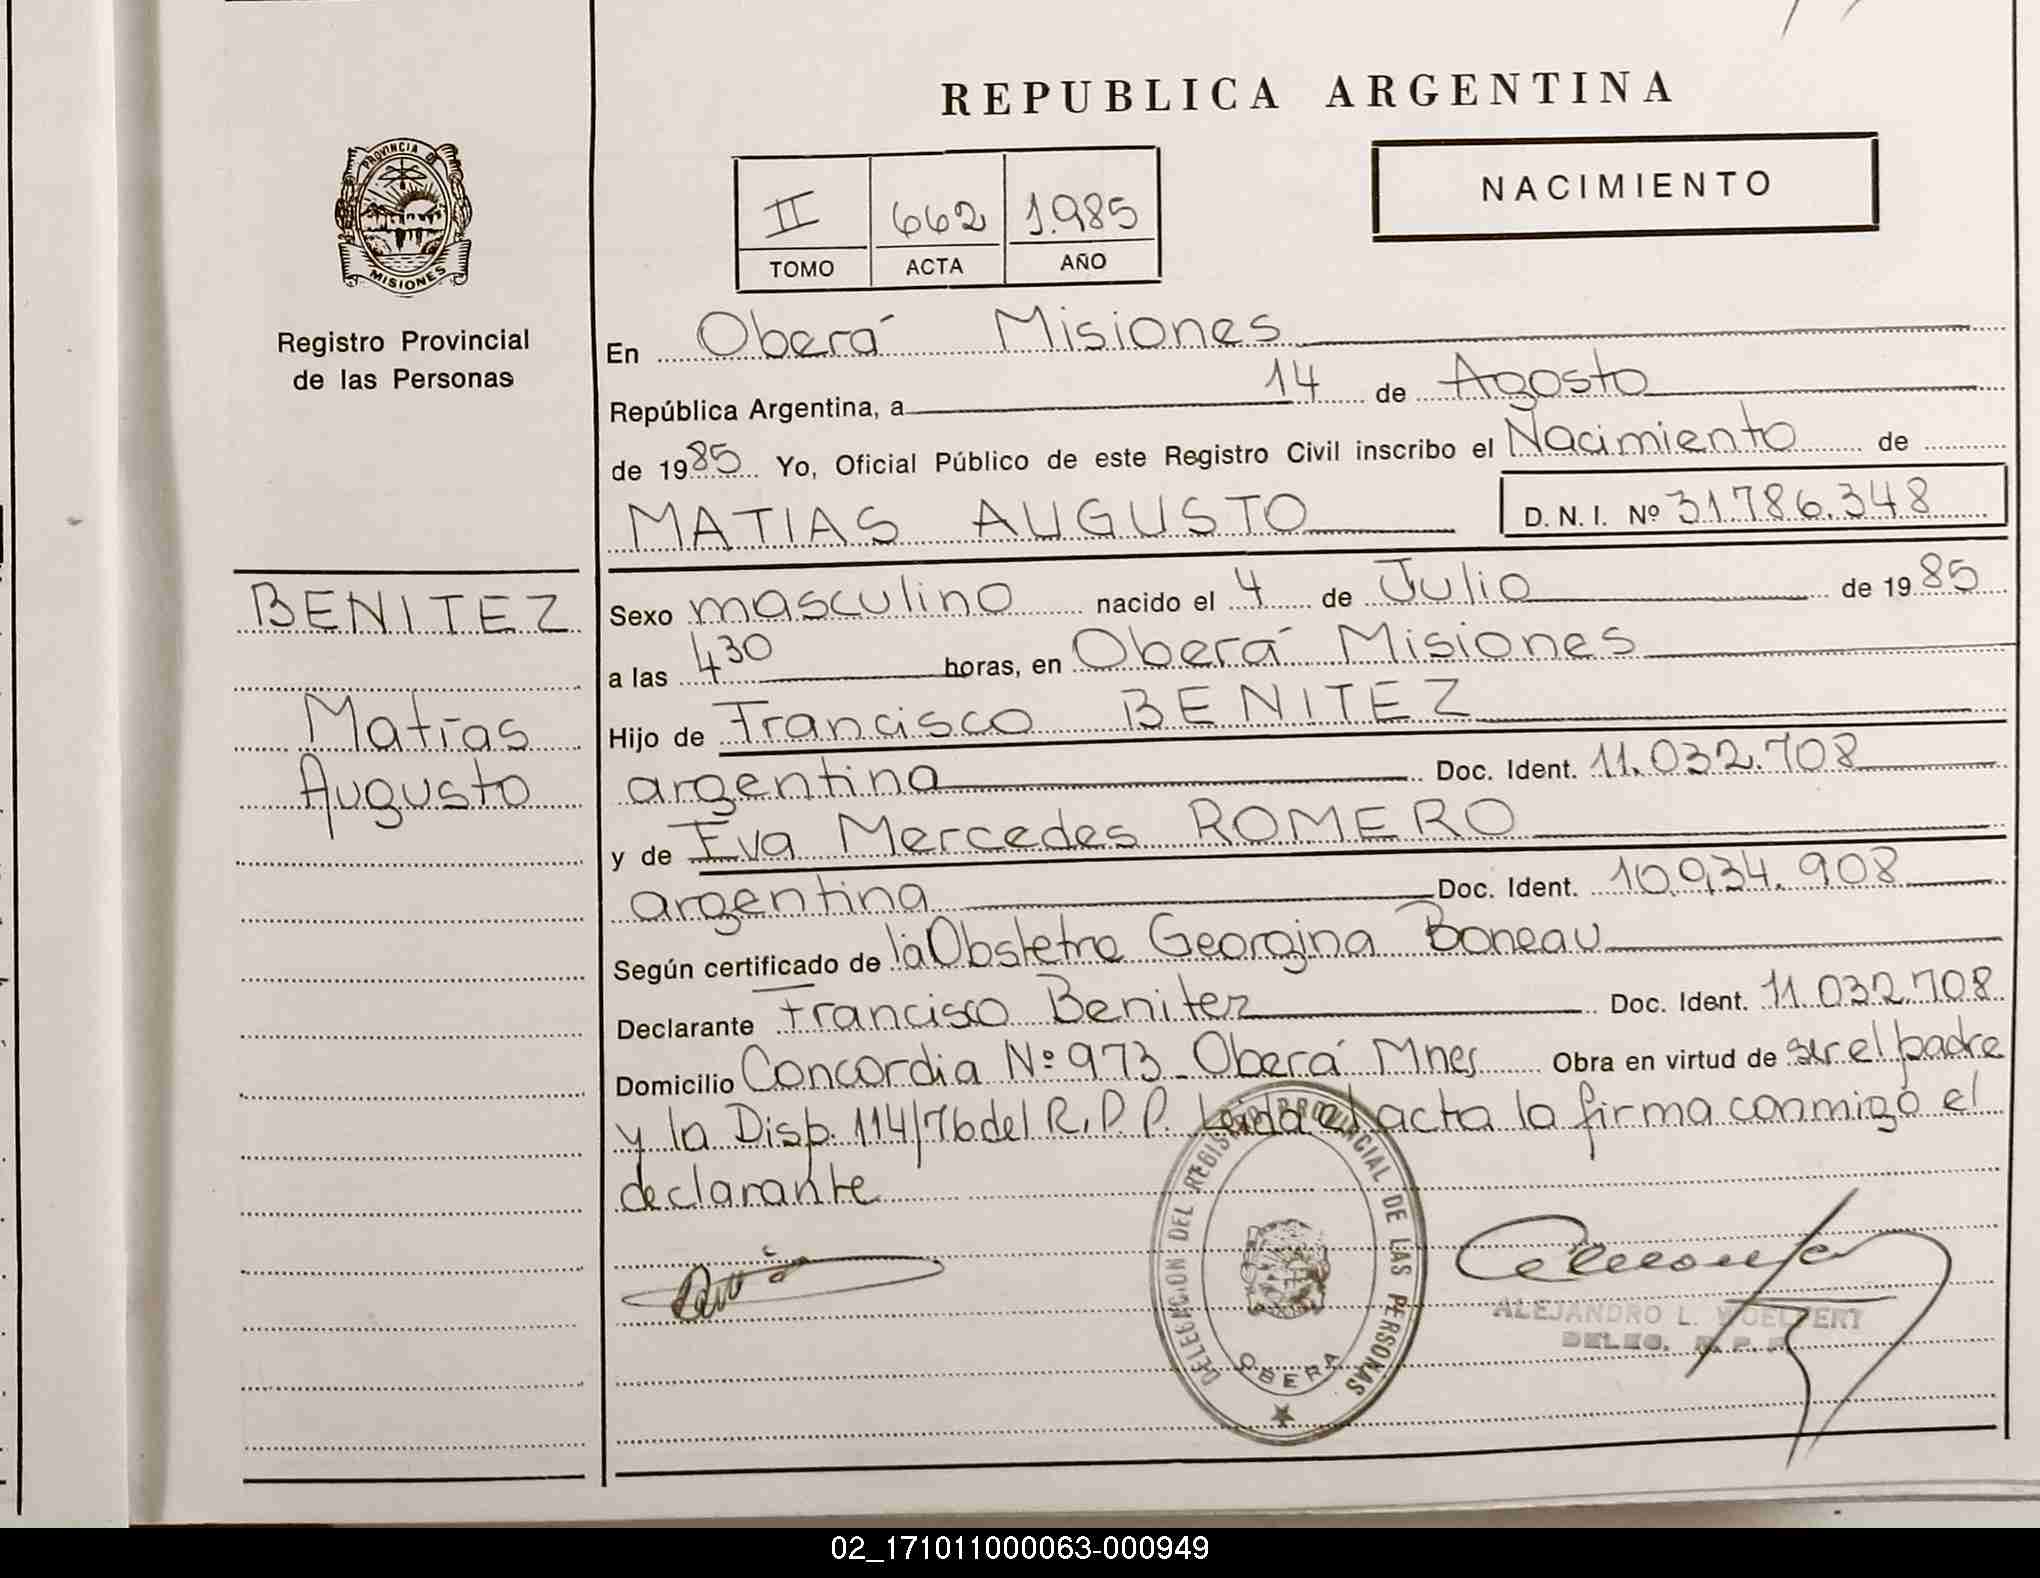 REPUBLICA ARGENTINA
NACIMIENTO
II 662 1.985
TOMO ACTA AÑO
PROVINCIA DE
MISIONES
Registro Provincial
de las Personas
BENITEZ
Matías
Augusto
En Oberá Misiones
República Argentina, a 14 de Agosto
de 1985 Yo, Oficial Público de este Registro Civil inscribo el Nacimiento de
MATIAS AUGUSTO D. N. I. Nº 31.786.348
Sexo masculino nacido el 4 de Julio de 1985
a las 4 30 horas, en Oberá Misiones
Hijo de Francisco BENITEZ
argentina Doc. Ident. 11.032.708
y de Eva Mercedes ROMERO
argentina Doc. Ident. 10.934.908
Según certificado de la Obstetra Georgina Boneau
Declarante Francisco Benitez Doc. Ident. 11.032.708
Domicilio Concordia Nº 973 Oberá Mnes Obra en virtud de ser el padre
y la Disp. 114/76 del R.P.P. Leida el acta la firma conmigo el
declarante
DELEGACION DEL REGISTRO PROVINCIAL DE LAS PERSONAS
OBERA
ALEJANDRO L.
DELEG. R. P. P.
02_171011000063-000949